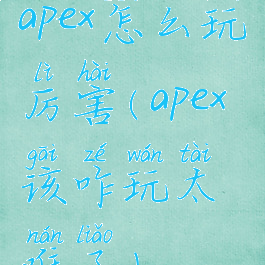 apex怎么玩
lì hài
厉害(apex
gāi zé wán tài
该咋玩太
nán liǎo
难了)